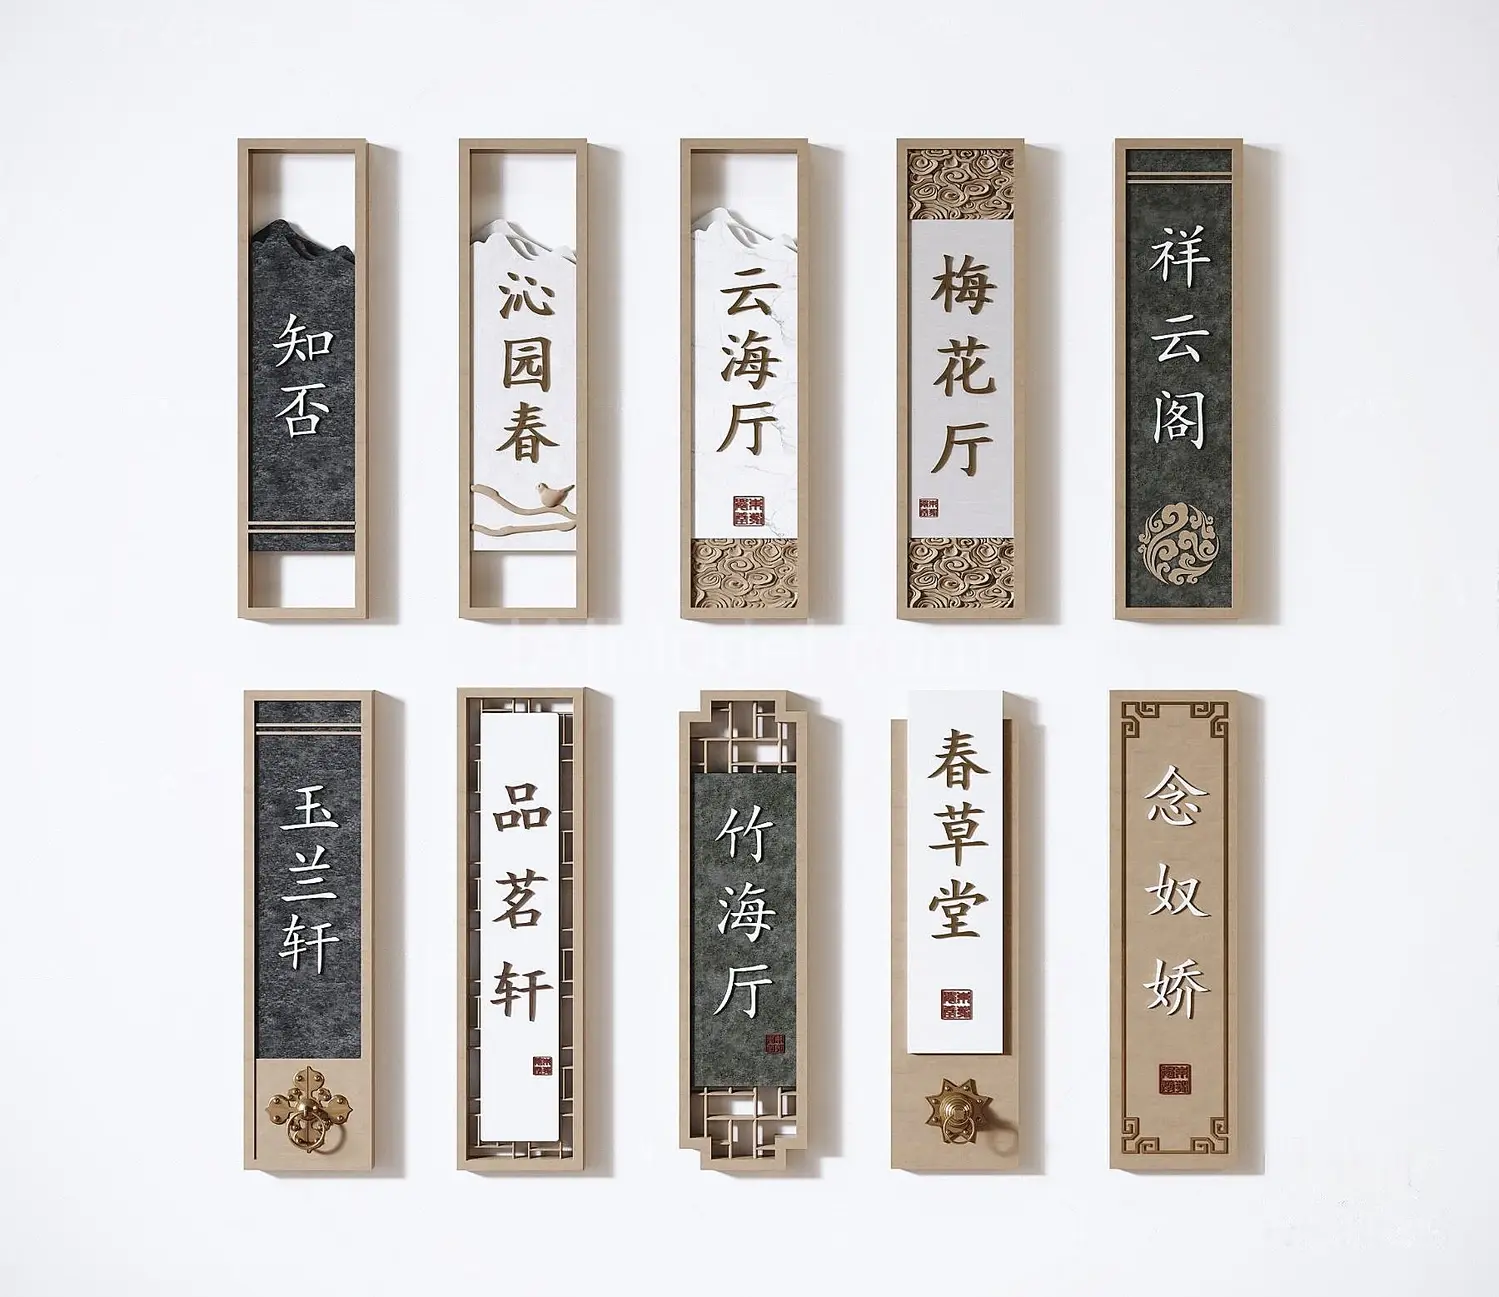 知否
沁园春
云海厅
梅花厅
祥云阁
玉兰轩
品茗轩
竹海厅
春草堂
念奴娇